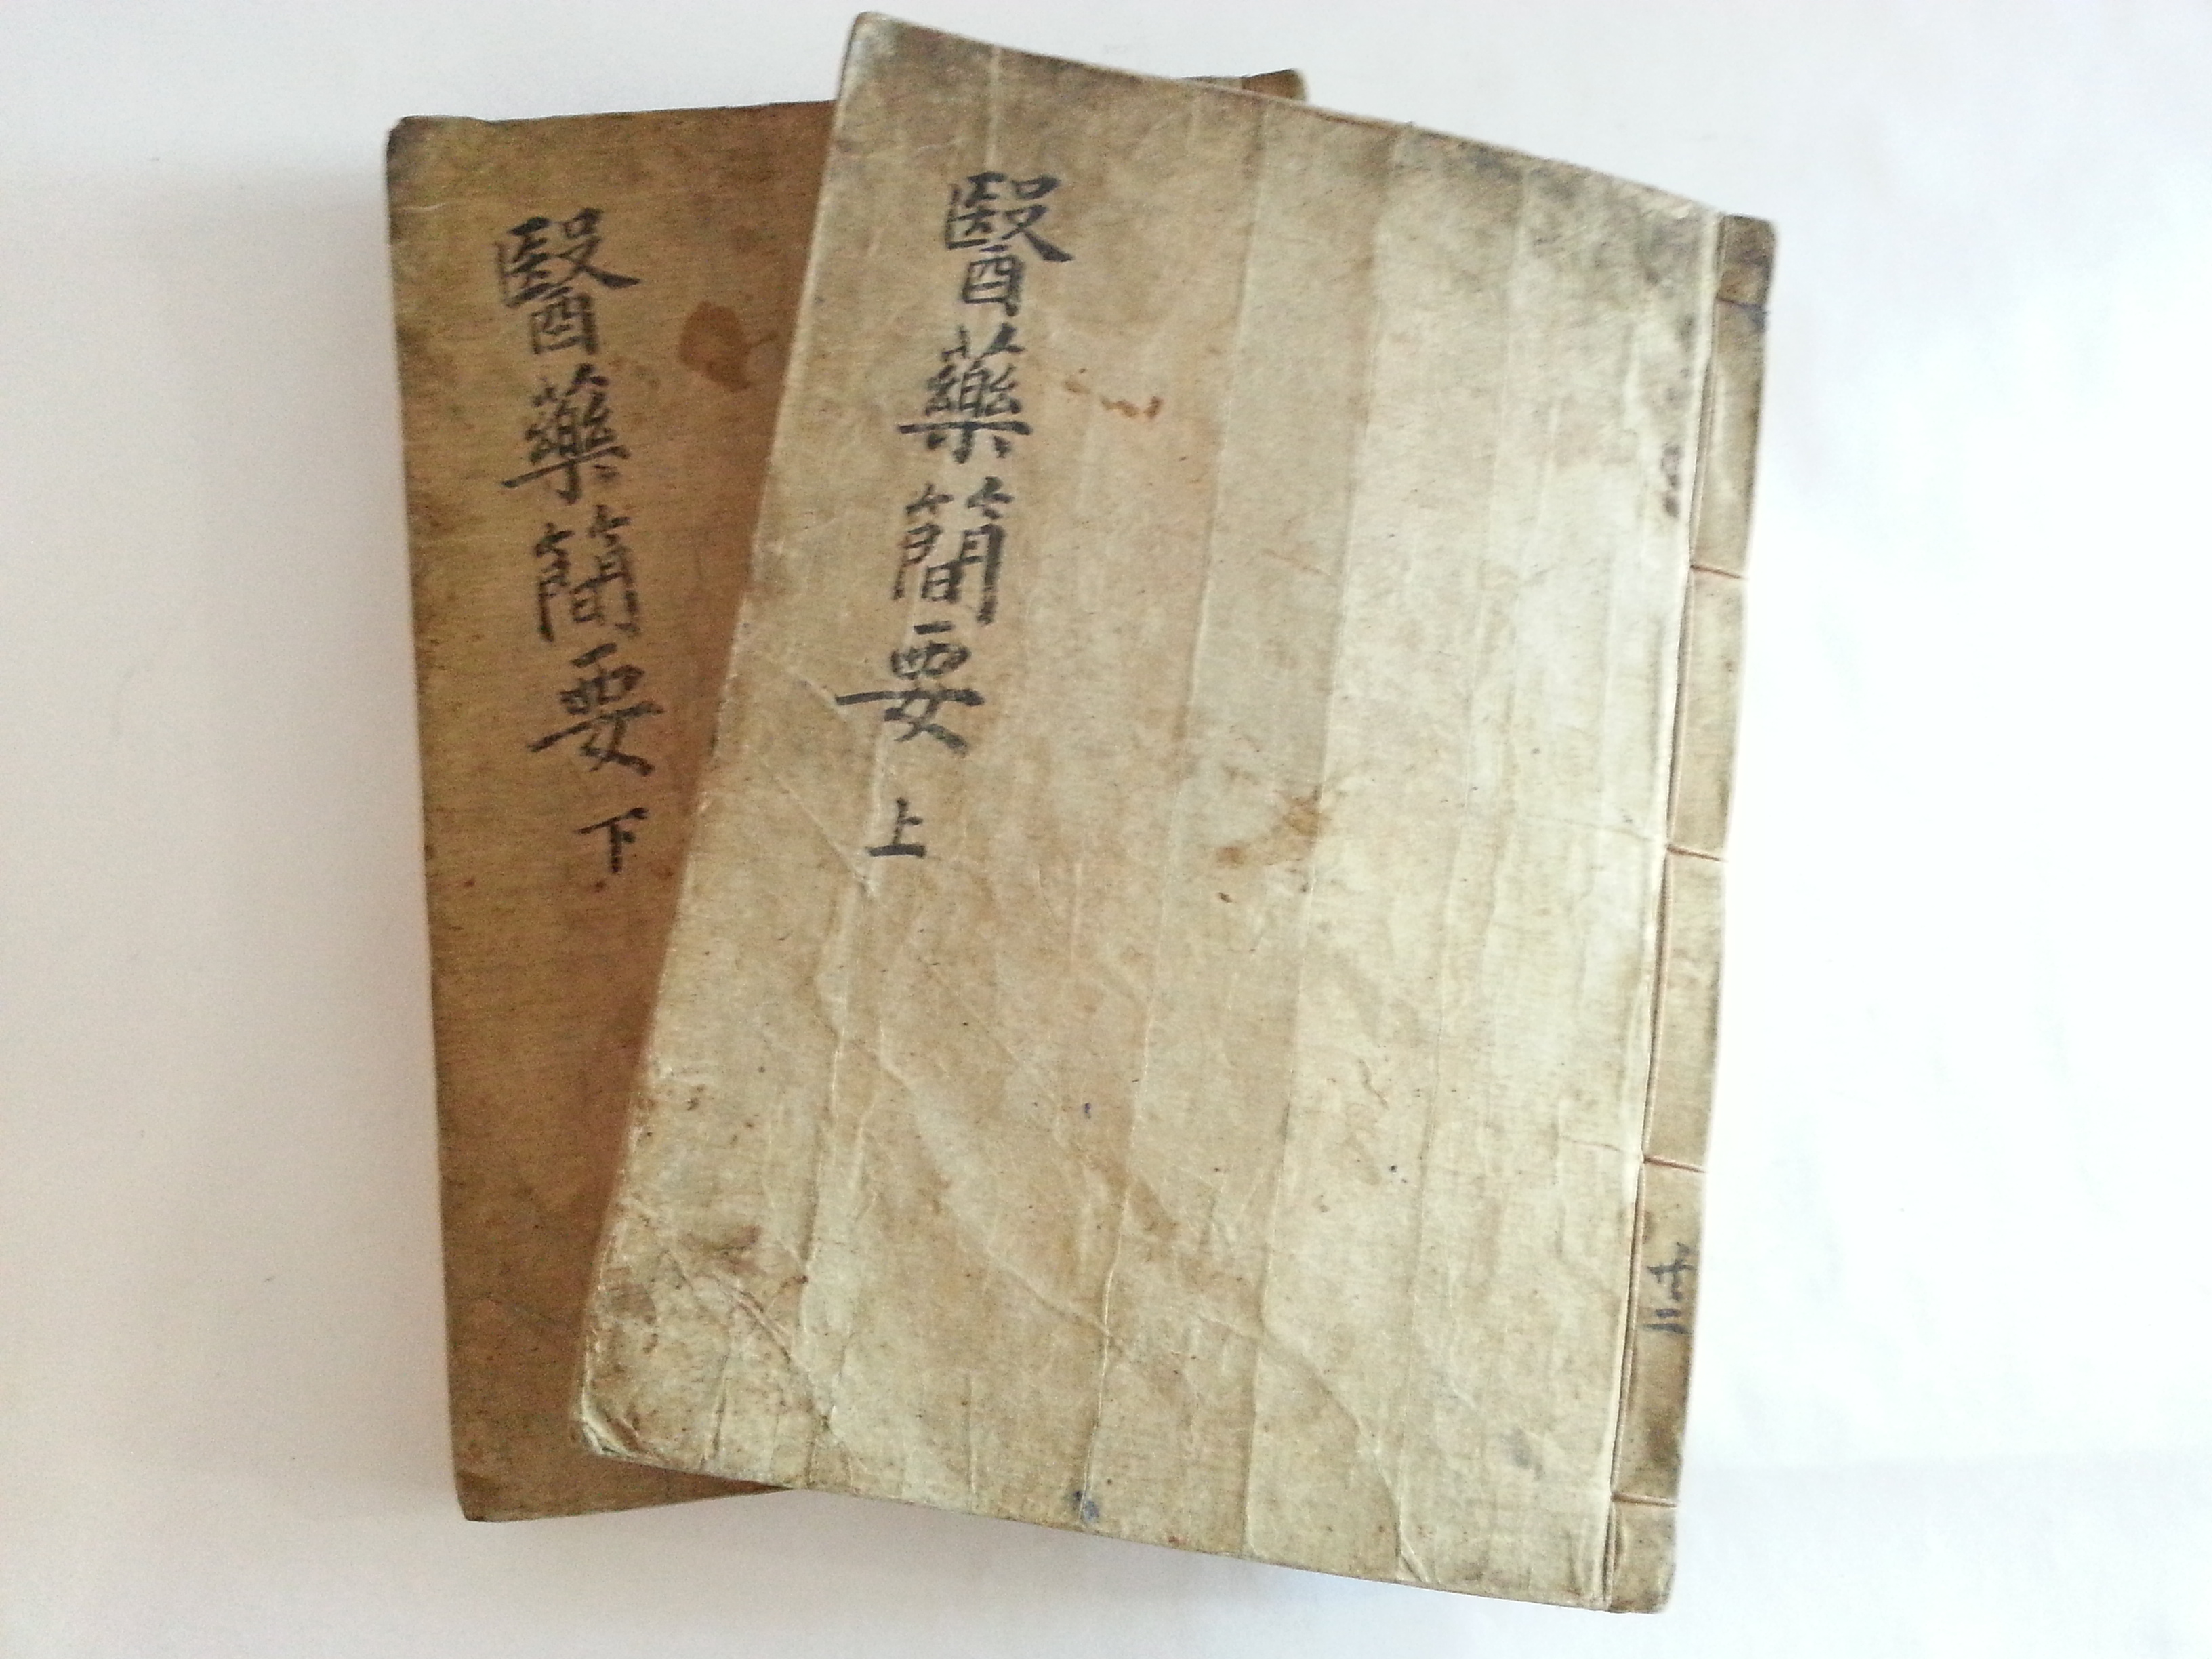 醫藥簡要 上
醫藥簡要 下